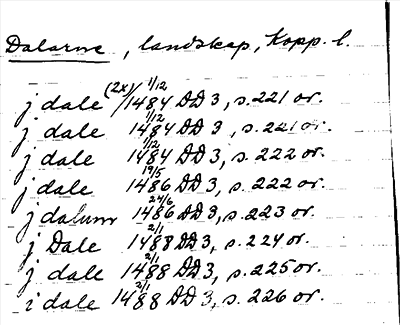 Dalarne, landskap, Kopp. l.
j dale (2x) 1/12 1484 DD 3, s. 221 or.
j dale 1/12 1484 DD 3, s. 221 or.
j dale 1/12 1484 DD 3, s. 222 or.
j dale 19/5 1486 DD 3, s. 222 or.
j dalum 24/6 1486 DD 3, s. 223 or.
j Dale 2/1 1488 DD 3, s. 224 or.
j dale 2/1 1488 DD 3, s. 225 or.
i dale 2/1 1488 DD 3, s. 226 or.